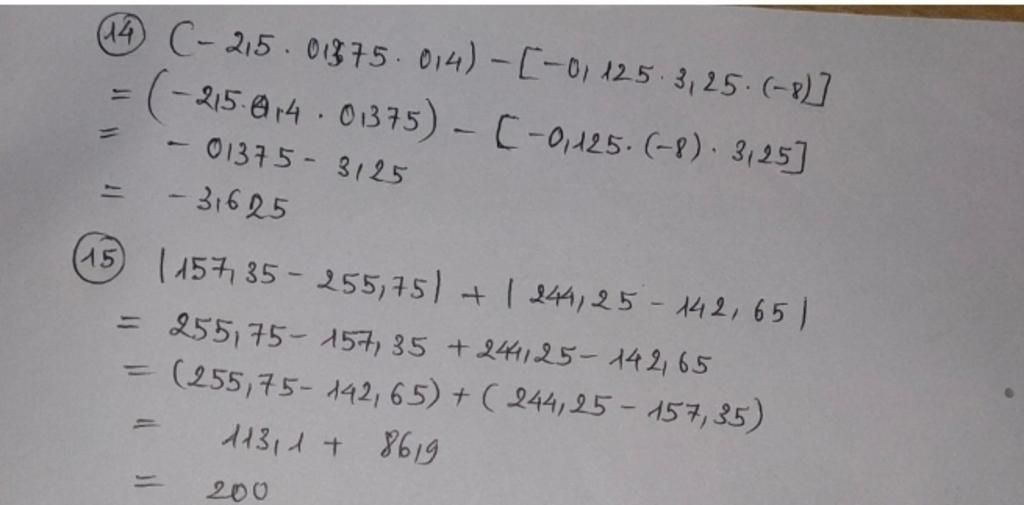 14 (-2,5 · 0,375 · 0,4) - [-0,125 · 3,25 · (-8)]
= (-2,5 · 0,4 · 0,375) - [-0,125 · (-8) · 3,25]
= - 0,375 - 3,25
= - 3,625
15 |157,35 - 255,75| + |244,25 - 142,65|
= 255,75 - 157,35 + 244,25 - 142,65
= (255,75 - 142,65) + (244,25 - 157,35)
= 113,1 + 86,9
= 200